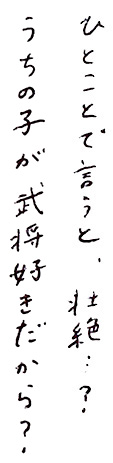 ひとことで言うと、壮絶…?
うちの子が、武将好きだから?